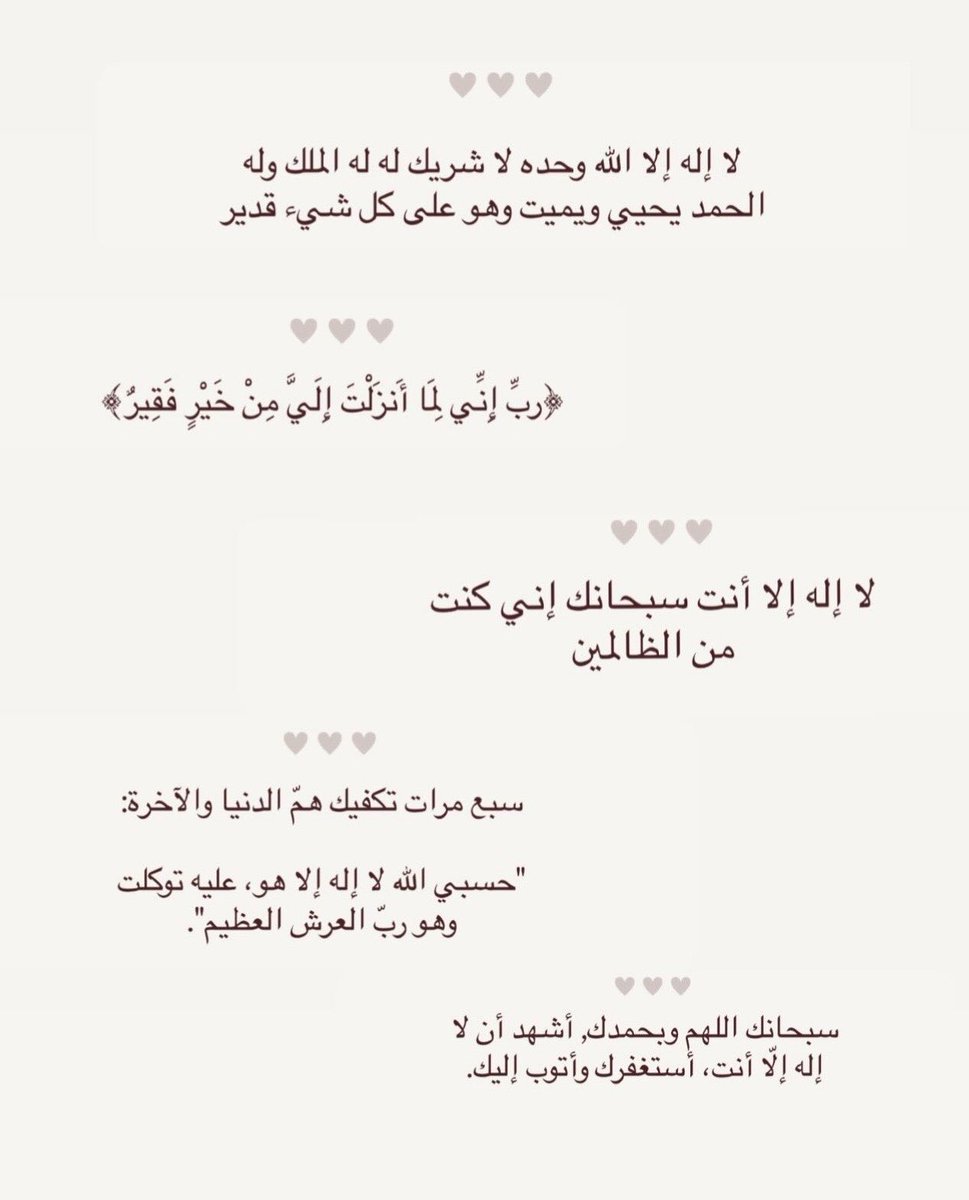 لا إله إلا الله وحده لا شريك له له الملك وله
الحمد يحيي ويميت وهو على كل شيء قدير
﴿ربِّ إِنِّي لِمَا أَنزَلْتَ إِلَيَّ مِنْ خَيْرٍ فَقِيرٌ﴾
لا إله إلا أنت سبحانك إني كنت
من الظالمين
سبع مرات تكفيك همّ الدنيا والآخرة:
"حسبي الله لا إله إلا هو، عليه توكلت
وهو ربّ العرش العظيم".
سبحانك اللهم وبحمدك, أشهد أن لا
إله إلّا أنت، أستغفرك وأتوب إليك.